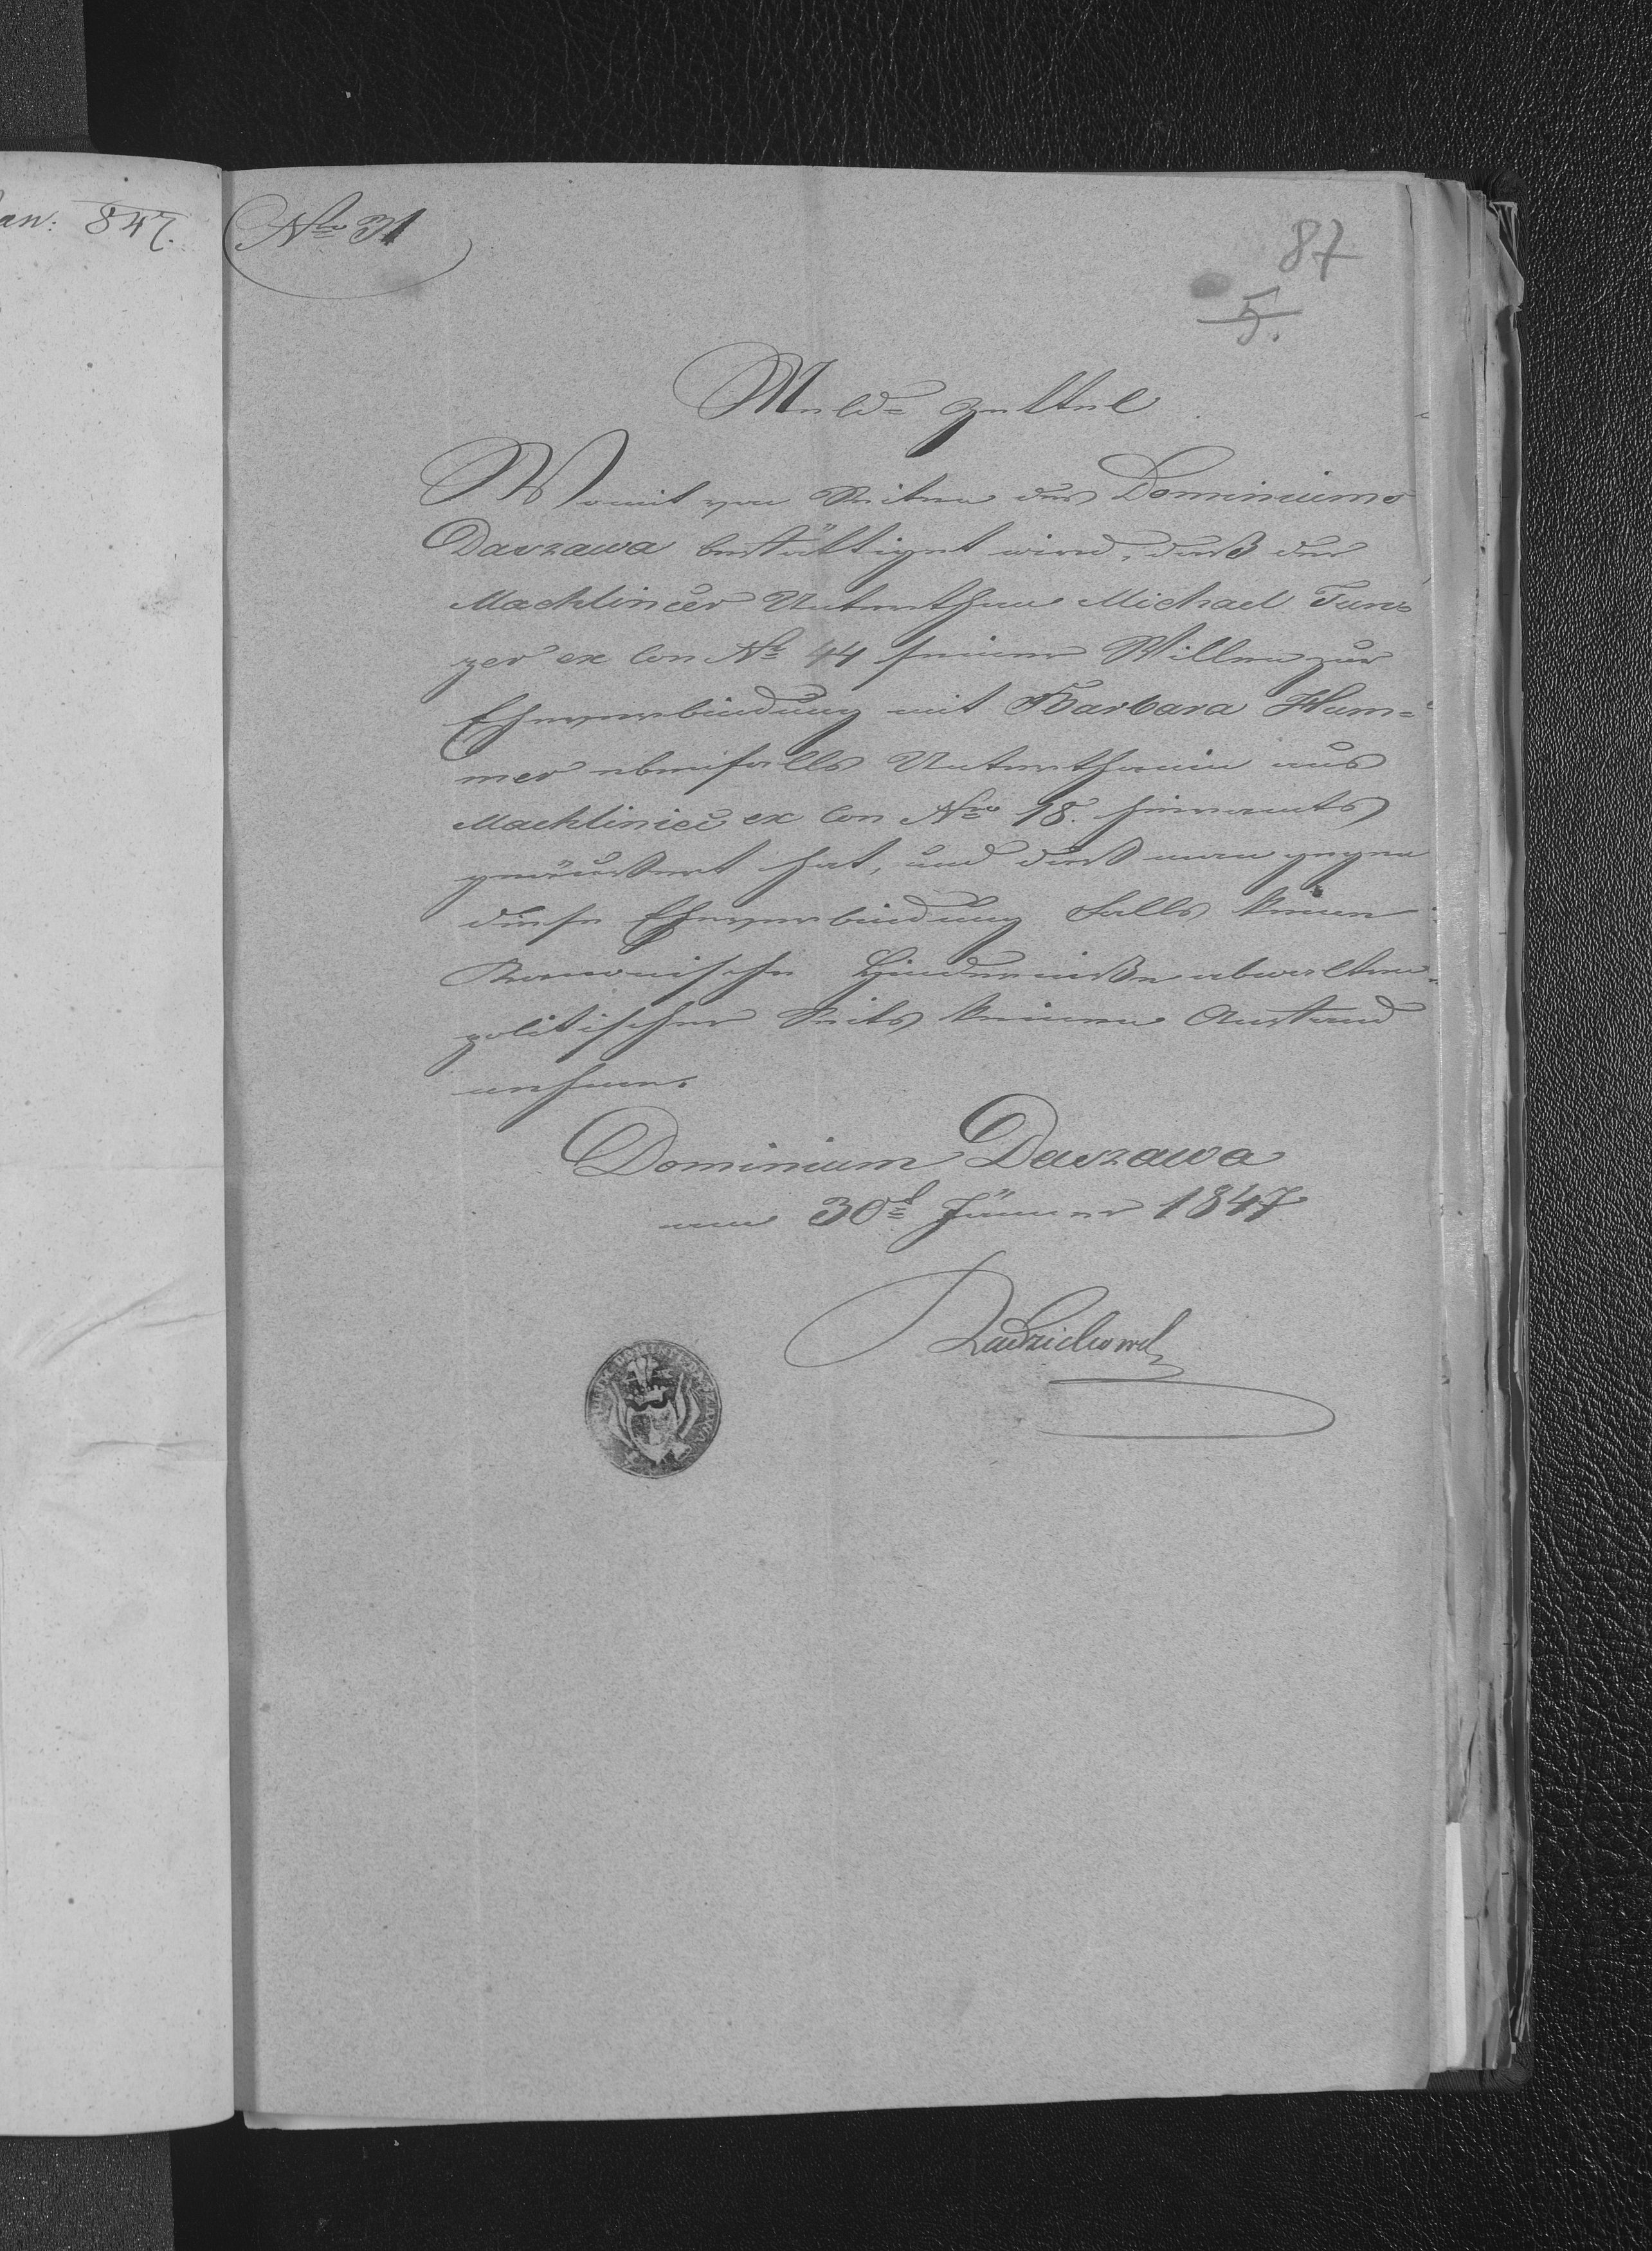 an: 847.
Nro 31
87
5.
Meld= zettel
Womit von Seiten des Dominiums
Daszawa bestättiget wird, daß der
Machlincer Unterthan Michael Tun=
zer ex Con Nr 44 seinen Willen zur
Eheverbindung mit Barbara Ham=
mer ebenfalls Unterthanin aus
Machliniec ex Con Nro 18. hieramts
geäußert hat, und daß man gegen
diese Eheverbindung falls keine
Kanonische Hinderniße obwalten
politischer Seits keinen Anstand
nehme.
Dominium Daszawa
am 30t Jänner 1847